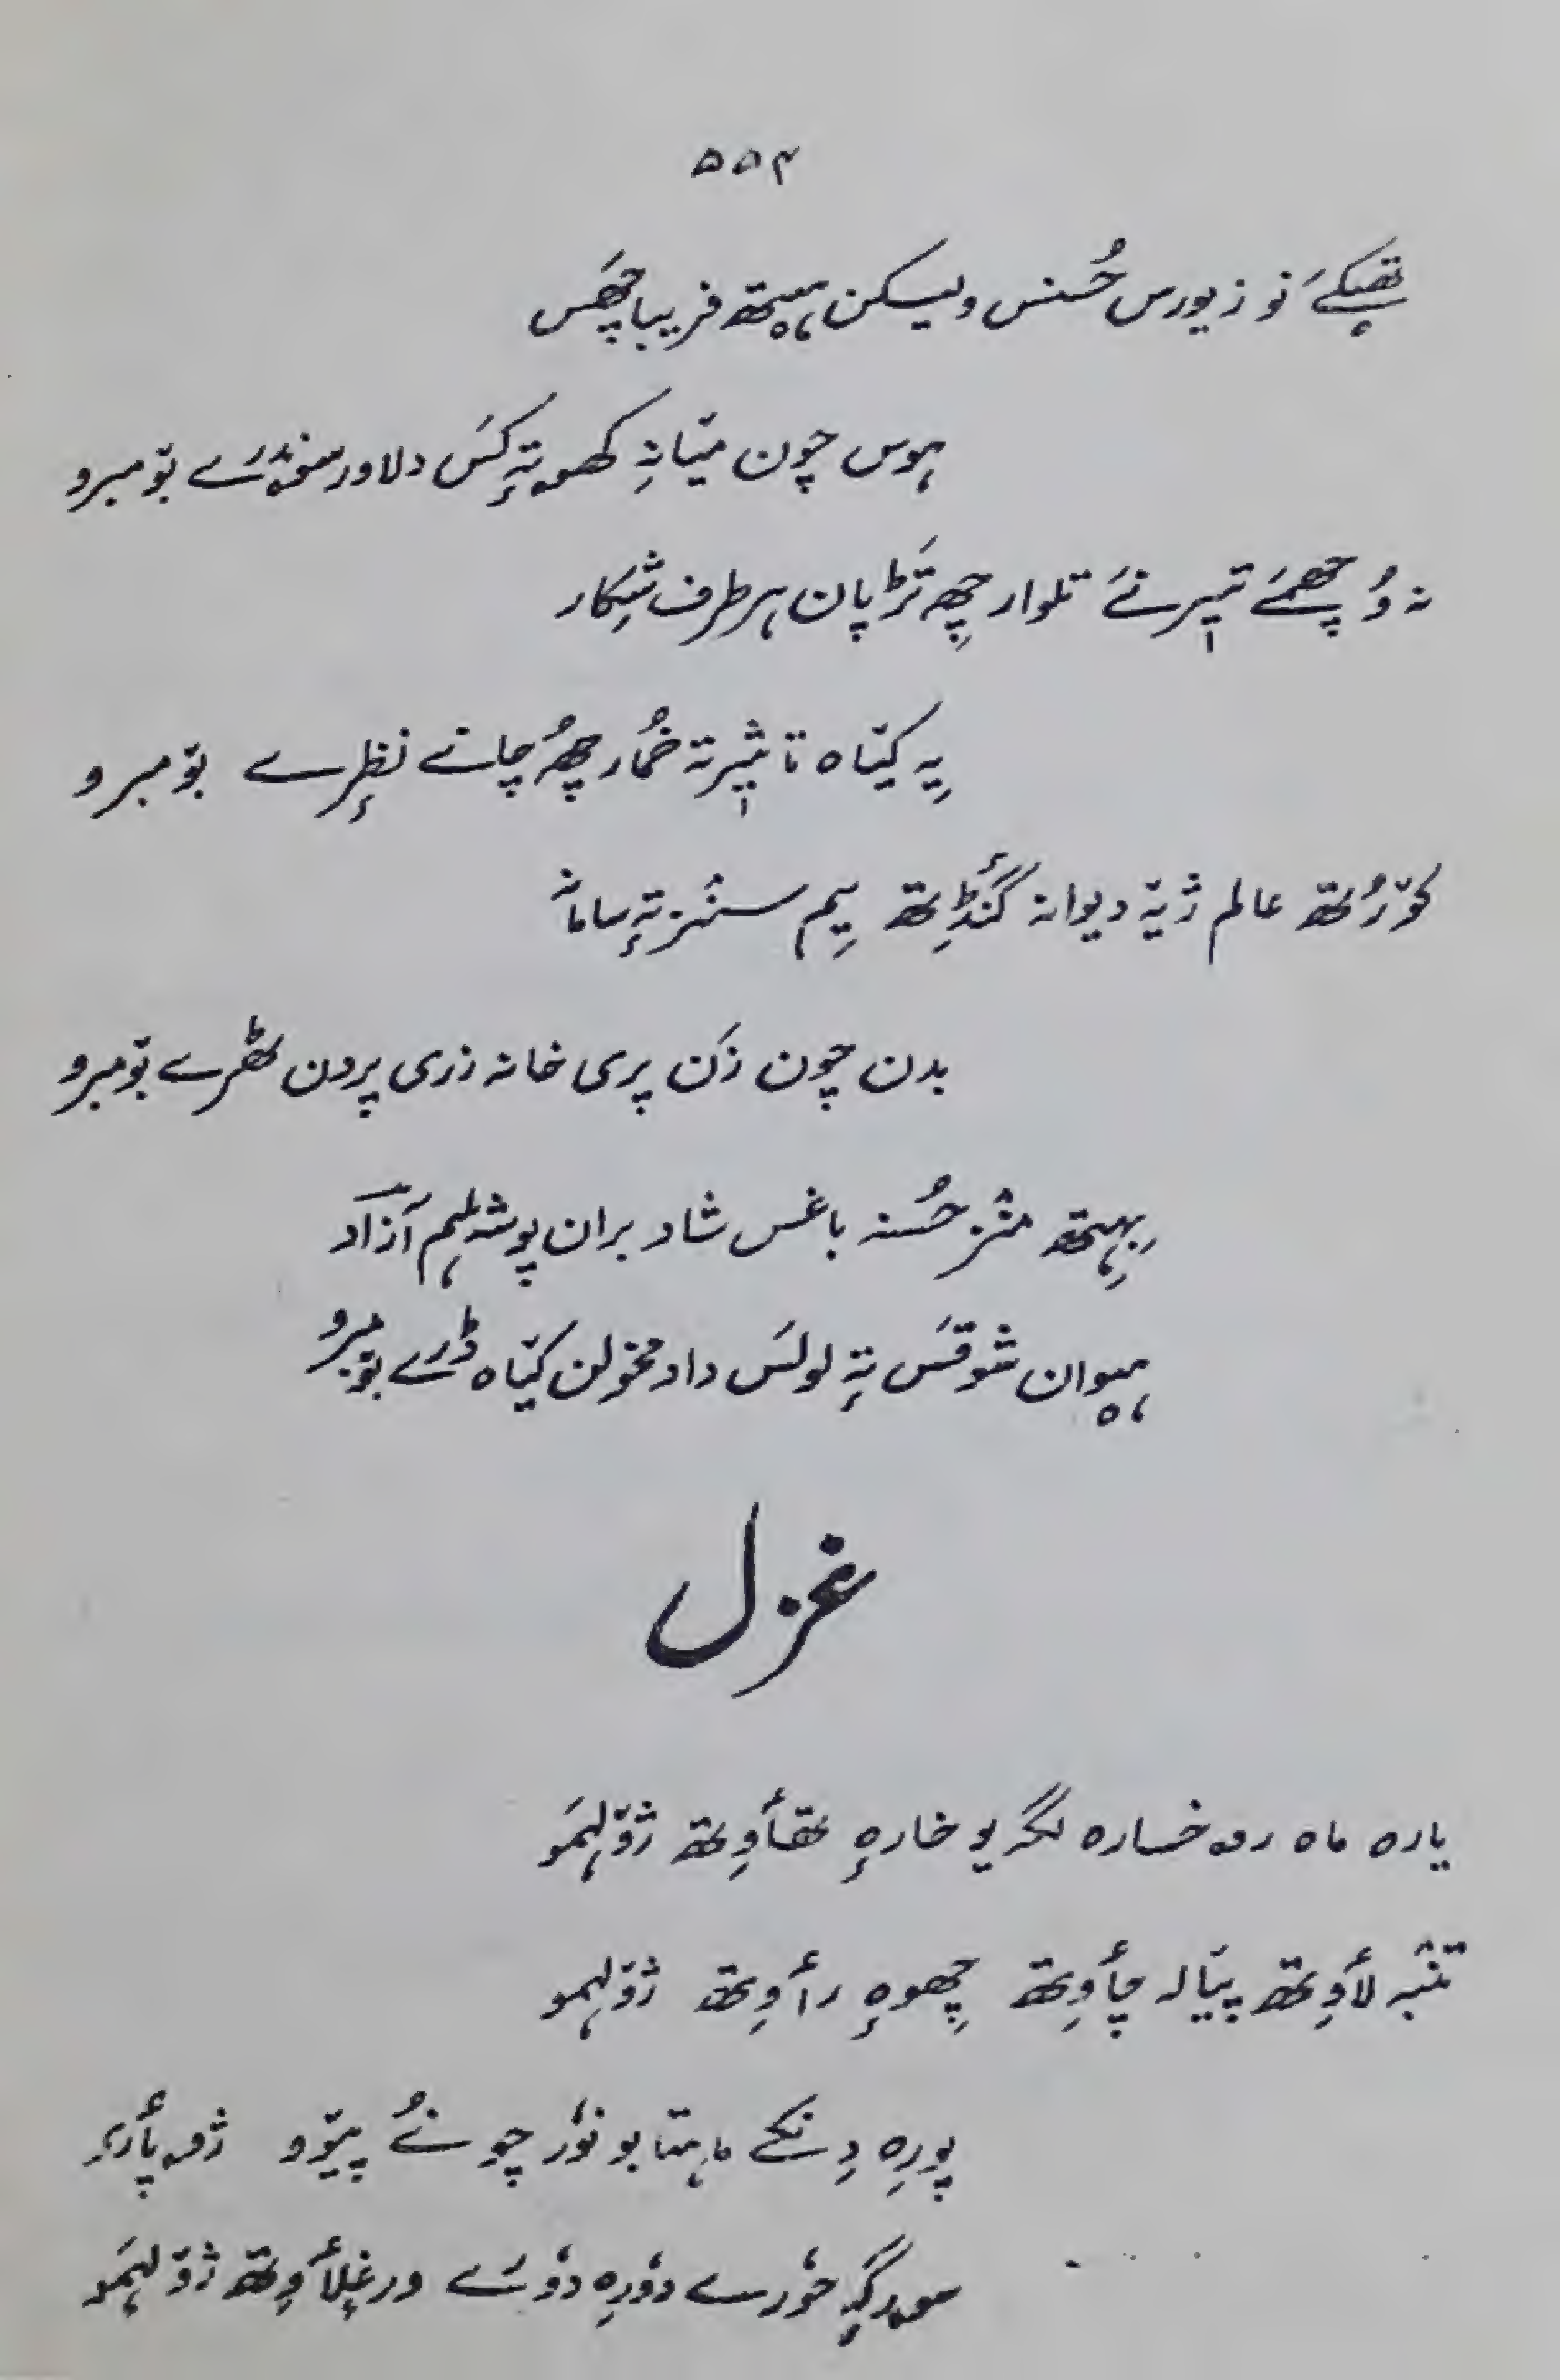 ۵۵۴
تھپکےَ نو زیورس حُسنس ولیکن ہیٚتھ فریبا چھَس
ہوس چون میٚانہِ کھۄتہٕ کَس دلاور سۄندرَے بۆمبرو
نہ وُچھمےَ تیٖر نےَ تلوار چھِ تَڑپان ہر طرف شِکار
یہِ کیٚاہ تاثیٖر تہ خُمار چھُ چانے نظرٕے بۆمبرو
کۆرُتھ عالم ژیٚہ دیوانہ گَنٛڈِتھ یِم سنٛز تہٕ سامانہٕ
بدن چون زَن پری خانہ زری پردن ٹھرے بۆمبرو
بِہِتھ منٛز حُسنہ باغس شاد بران پوشہ ہلم آزاد
ہیٚوان شوقَس تہٕ لولَس داد مخولن کیٚاہ ڈرے بۆمبرو
غزل
یارہ ماہ رۄخسارہ لگہ یو خارہٕ تھأوِتھ ژۆلہمَو
تنبہ لأوِتھ پیٚالہ چأوِتھ چھِوہٕ رأوِتھ ژۆلہمو
پورِہ دِنکے ماہتابو نوٗر چونُے پیٚوو ژۄپأرۍ
سۄرگہٕ حوٗرے دوٗرِہ دوٗرَے ورغلأوِتھ ژۆلہمَو